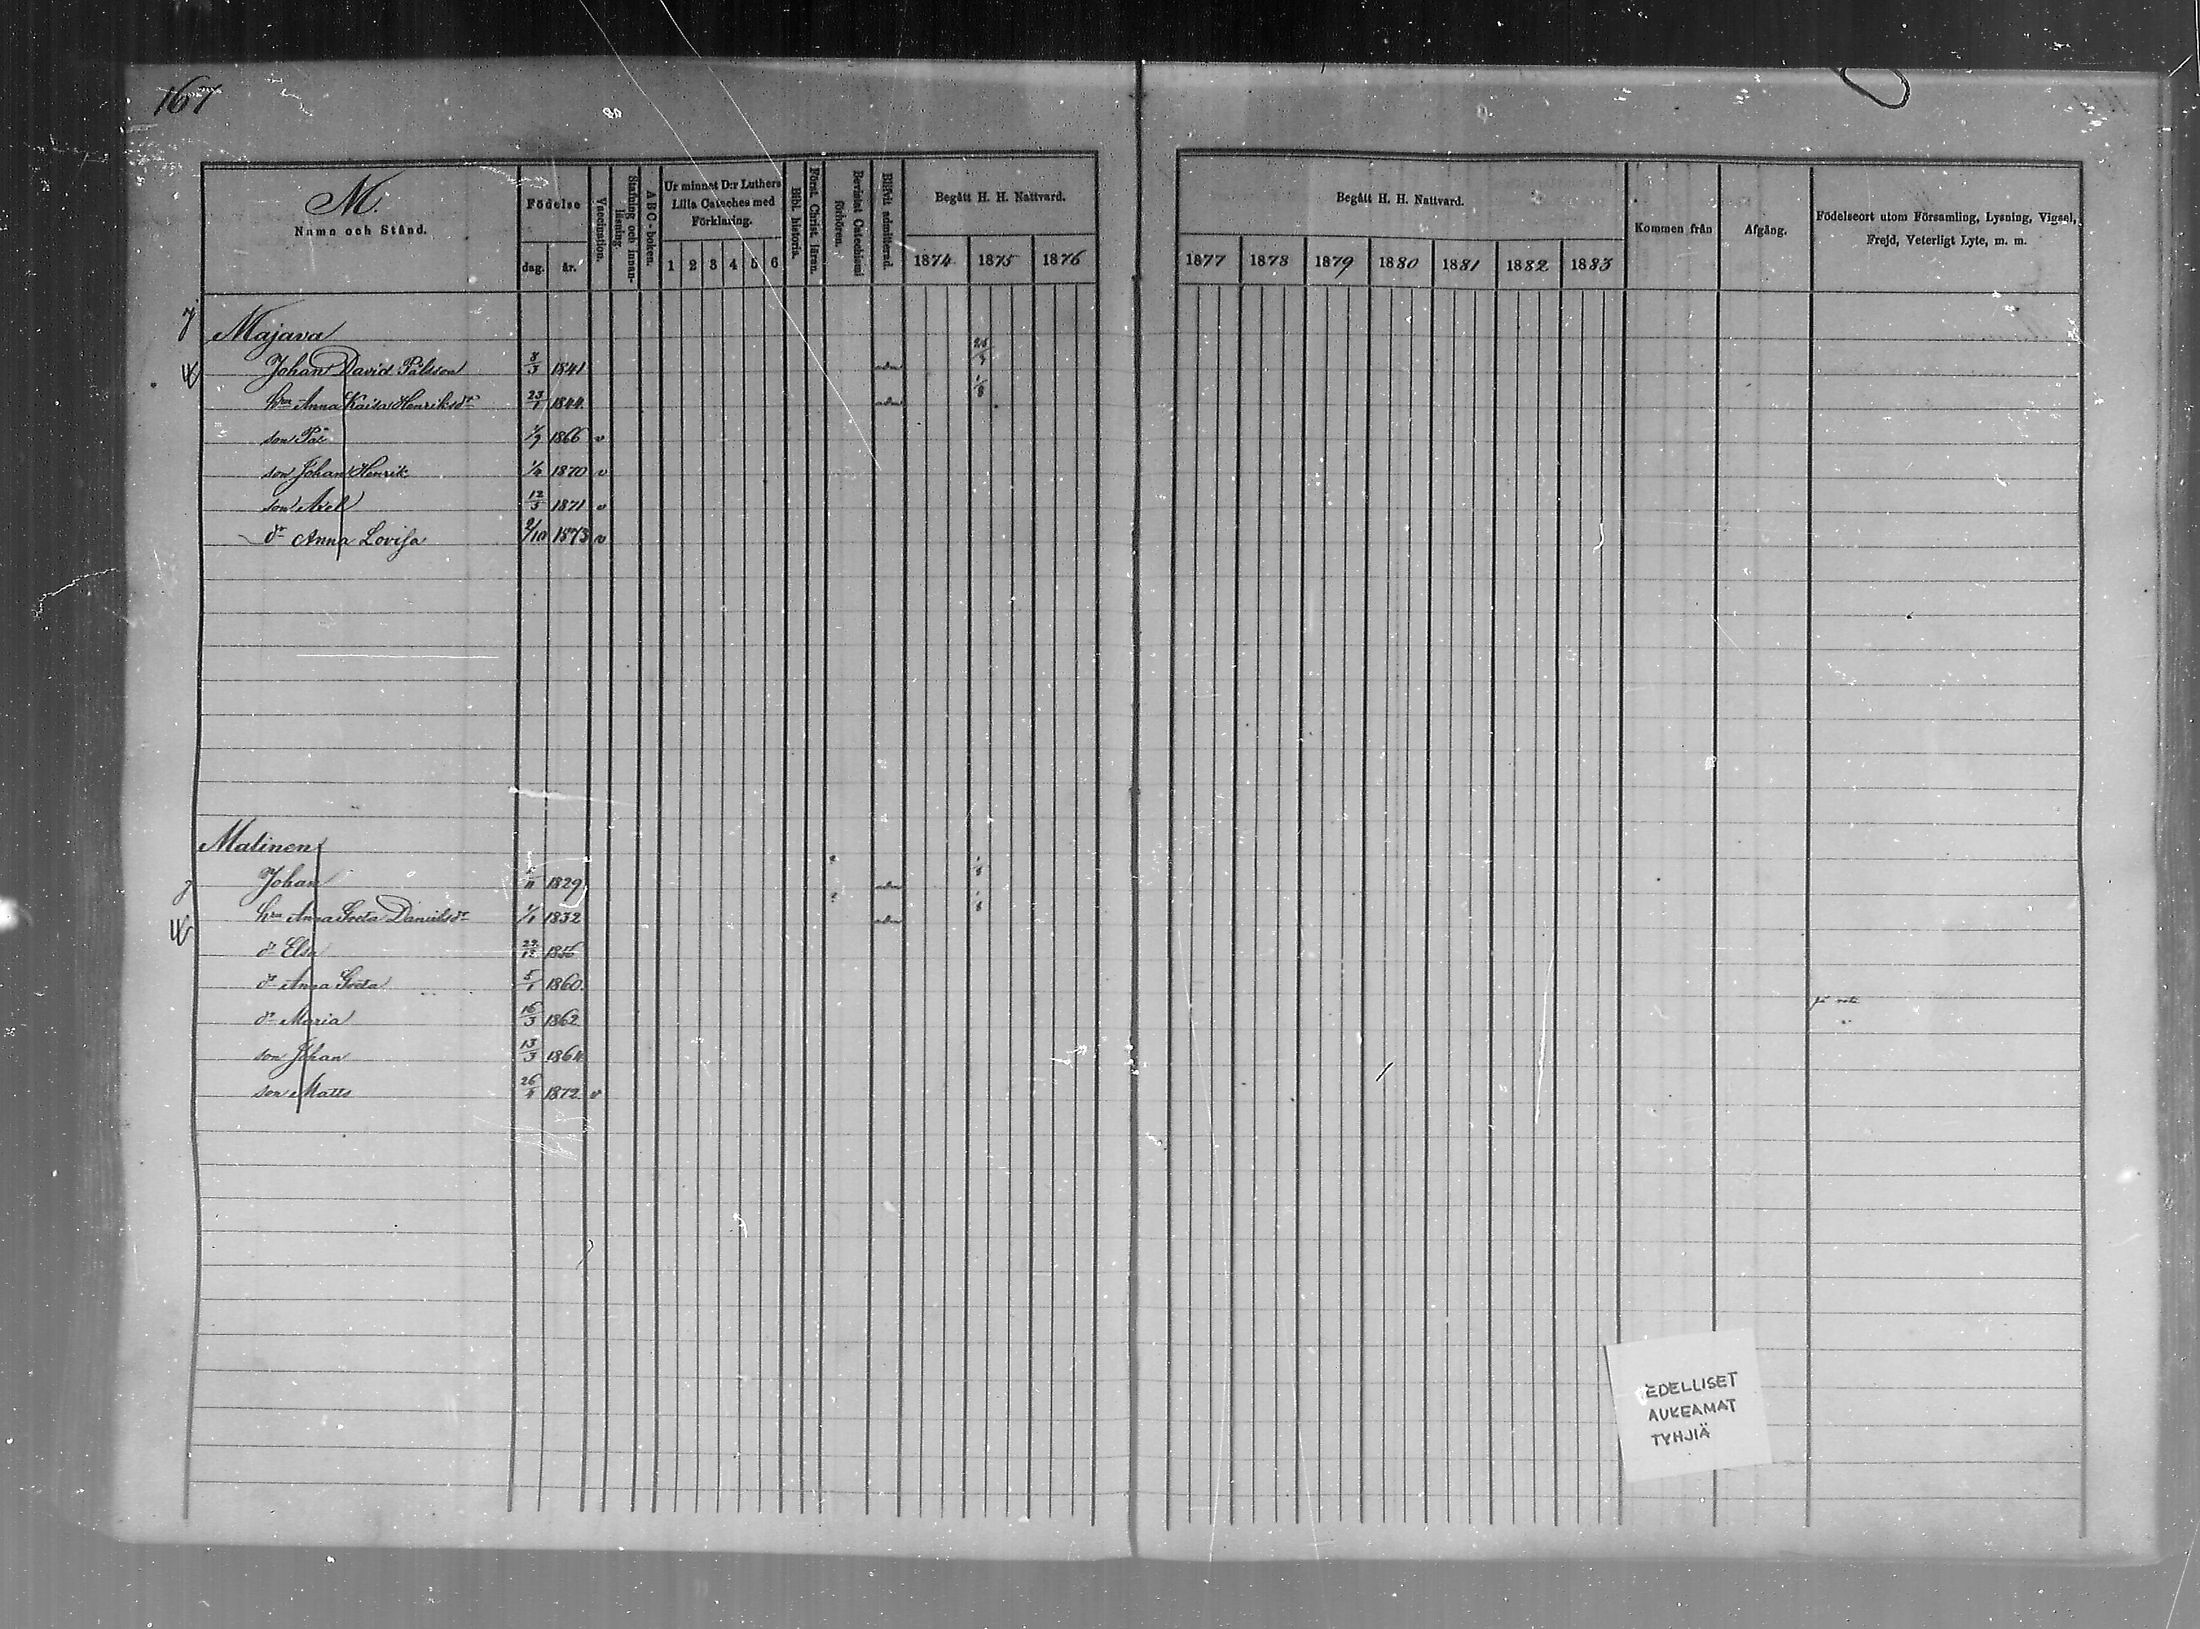 167
M.
Namn och Stånd.
Födelse
dag. år.
Vaccination.
Stafning och innanläsning.
A B C-boken.
Ur minnet D:r Luthers Lilla Cateches med Förklaring.
1 2 3 4 5 6
Bibl. historia.
Först. Christ. läran.
Bevistat Catechismi förhören.
Blifvit admitterad.
Begått H. H. Nattvard.
1874 1875 1876
Begått H. H. Nattvard.
1877 1878 1879 1880 1881 1882 1883
Kommen från
Afgång.
Födelseort utom Församling, Lysning, Vigsel, Frejd, Veterligt Lyte, m. m.
Majava
Johan David Pålsson 8/3 1841
hru Anna Kaisa Henriksdr 23/1 1844
son Pål 1/9 1866 v
son Johan Henrik 1/4 1870 v
son Axel 12/3 1871 v
dr Anna Lovisa 9/10 1873 v
Malinen
Johan 1829
hru Anna Greta Danielsdr 1/1 1832
dr Elsa 1856
dr Anna Greta 5/1 1860
dr Maria 16/3 1862
son Johan 13/3 1864
son Matts 1872 v
EDELLISET
AUKEAMAT
TYHJIÄ